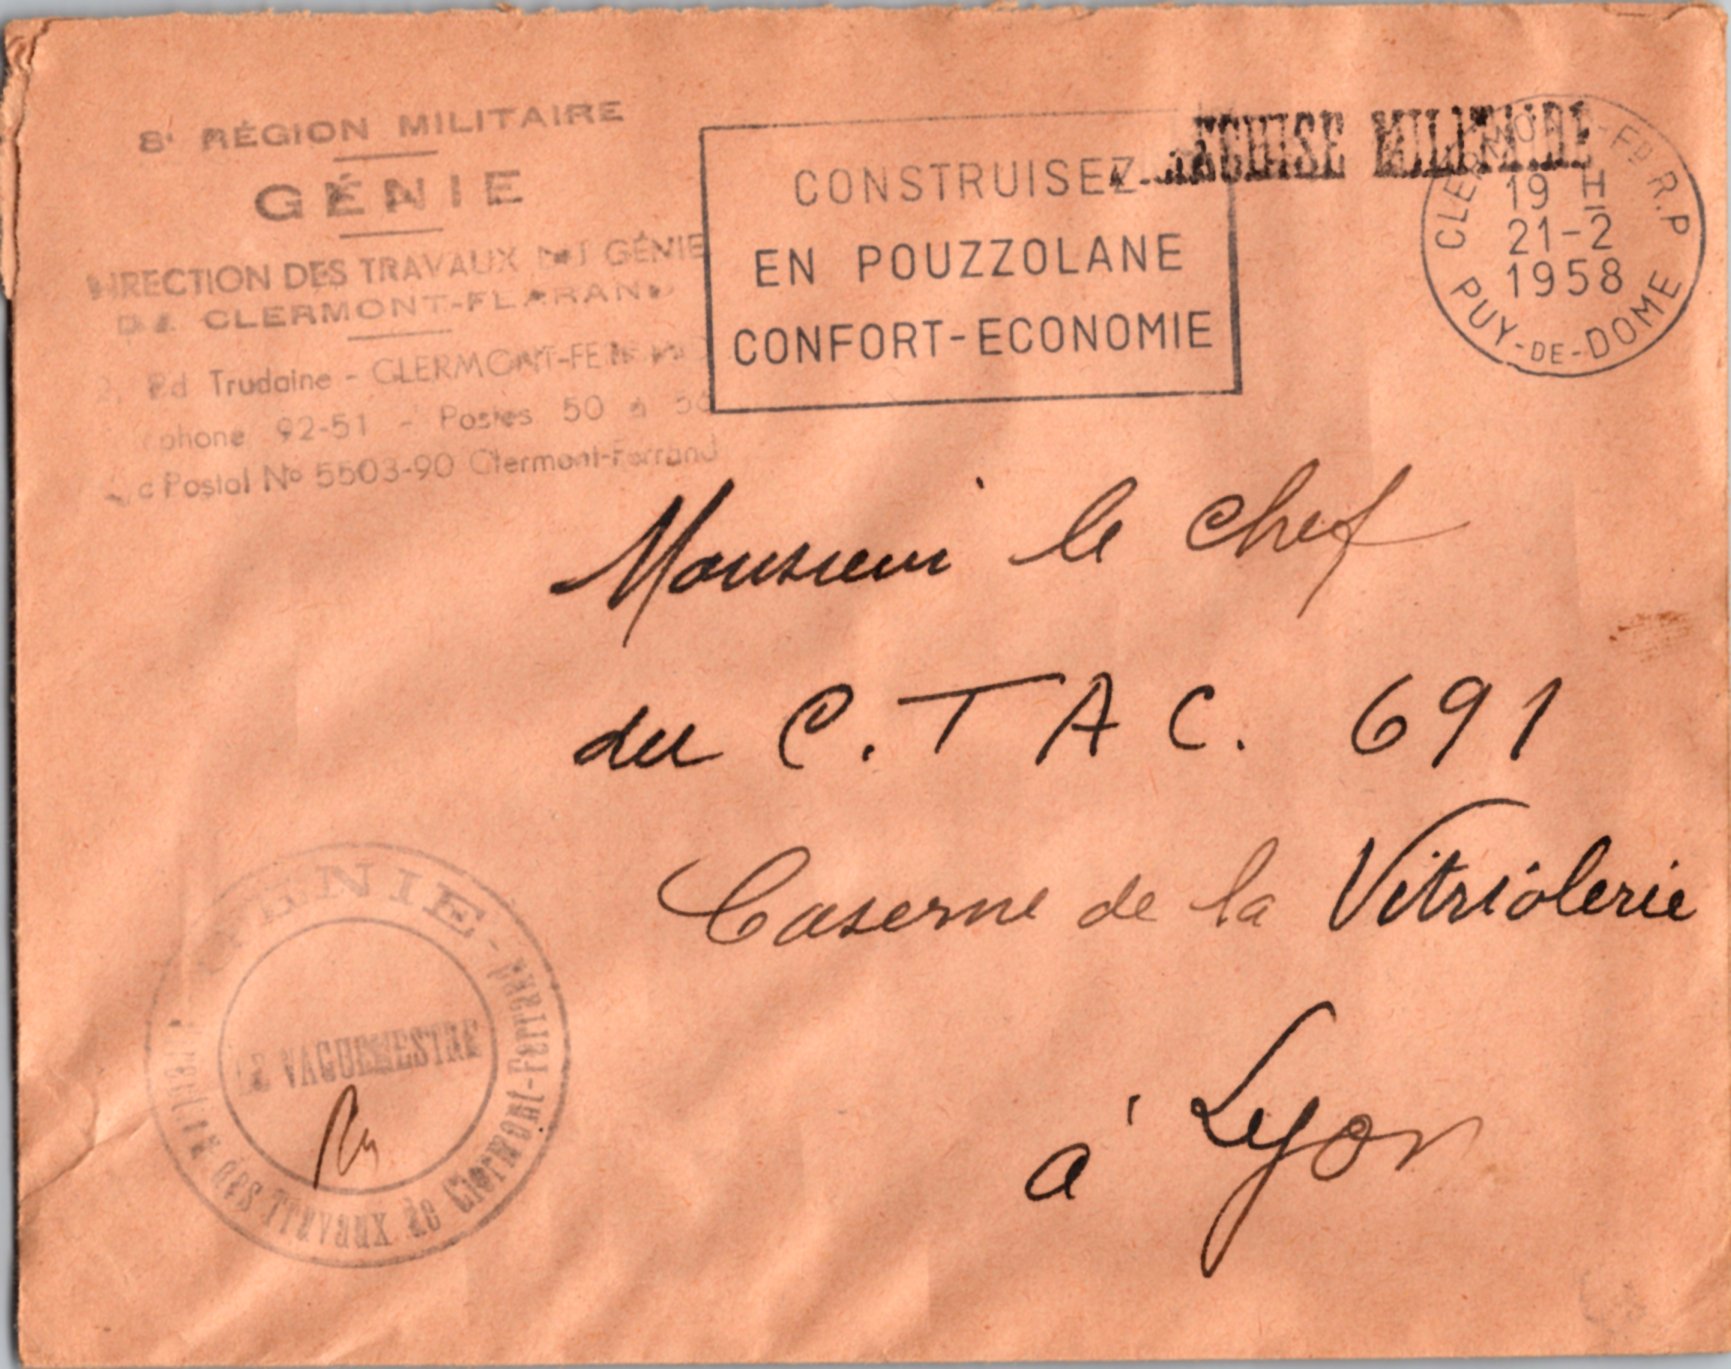 8e RÉGION MILITAIRE
GÉNIE
DIRECTION DES TRAVAUX DU GÉNIE
DE CLERMONT-FERRAND
Bd Trudaine - CLERMONT-FERRAND
phone 92-51 - Postes 50 à 56
c Postal No 5503-90 Clermont-Ferrand
CONSTRUISEZ
EN POUZZOLANE
CONFORT-ECONOMIE
FRANCHISE MILITAIRE
CLERMONT-FD R.P
19 H
21-2
1958
PUY-DE-DOME
Monsieur le Chef
du C.T A C. 691
Caserne de la Vitriolerie
à Lyon
GENIE
Direction des Travaux de Clermont-Ferrand
LE VAGUEMESTRE